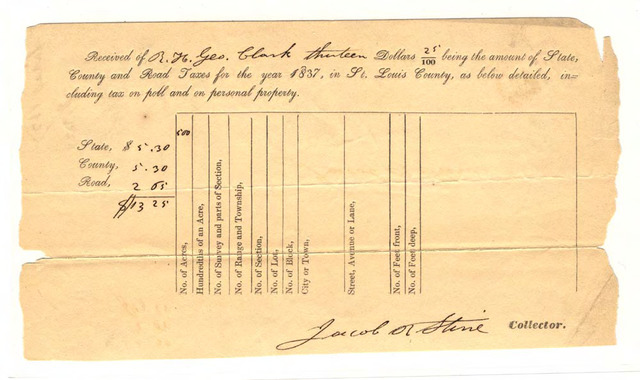 Received of R. H. Geo. Clark thirteen Dollars 25/100 being the amount of State,
County and Road Taxes for the year 1837, in St. Louis County, as below detailed, in=
cluding tax on poll and on personal property.
State, $ 5.30
County, 5.30
Road, 2 65
$13 25
500
No. of Acres,
Hundredths of an Acre,
No. of Survey and parts of Section,
No. of Range and Township,
No. of Section,
No. of Lot,
No. of Block,
City or Town,
Street, Avenue or Lane,
No. of Feet front,
No. of Feet deep,
Jacob R Stine Collector.